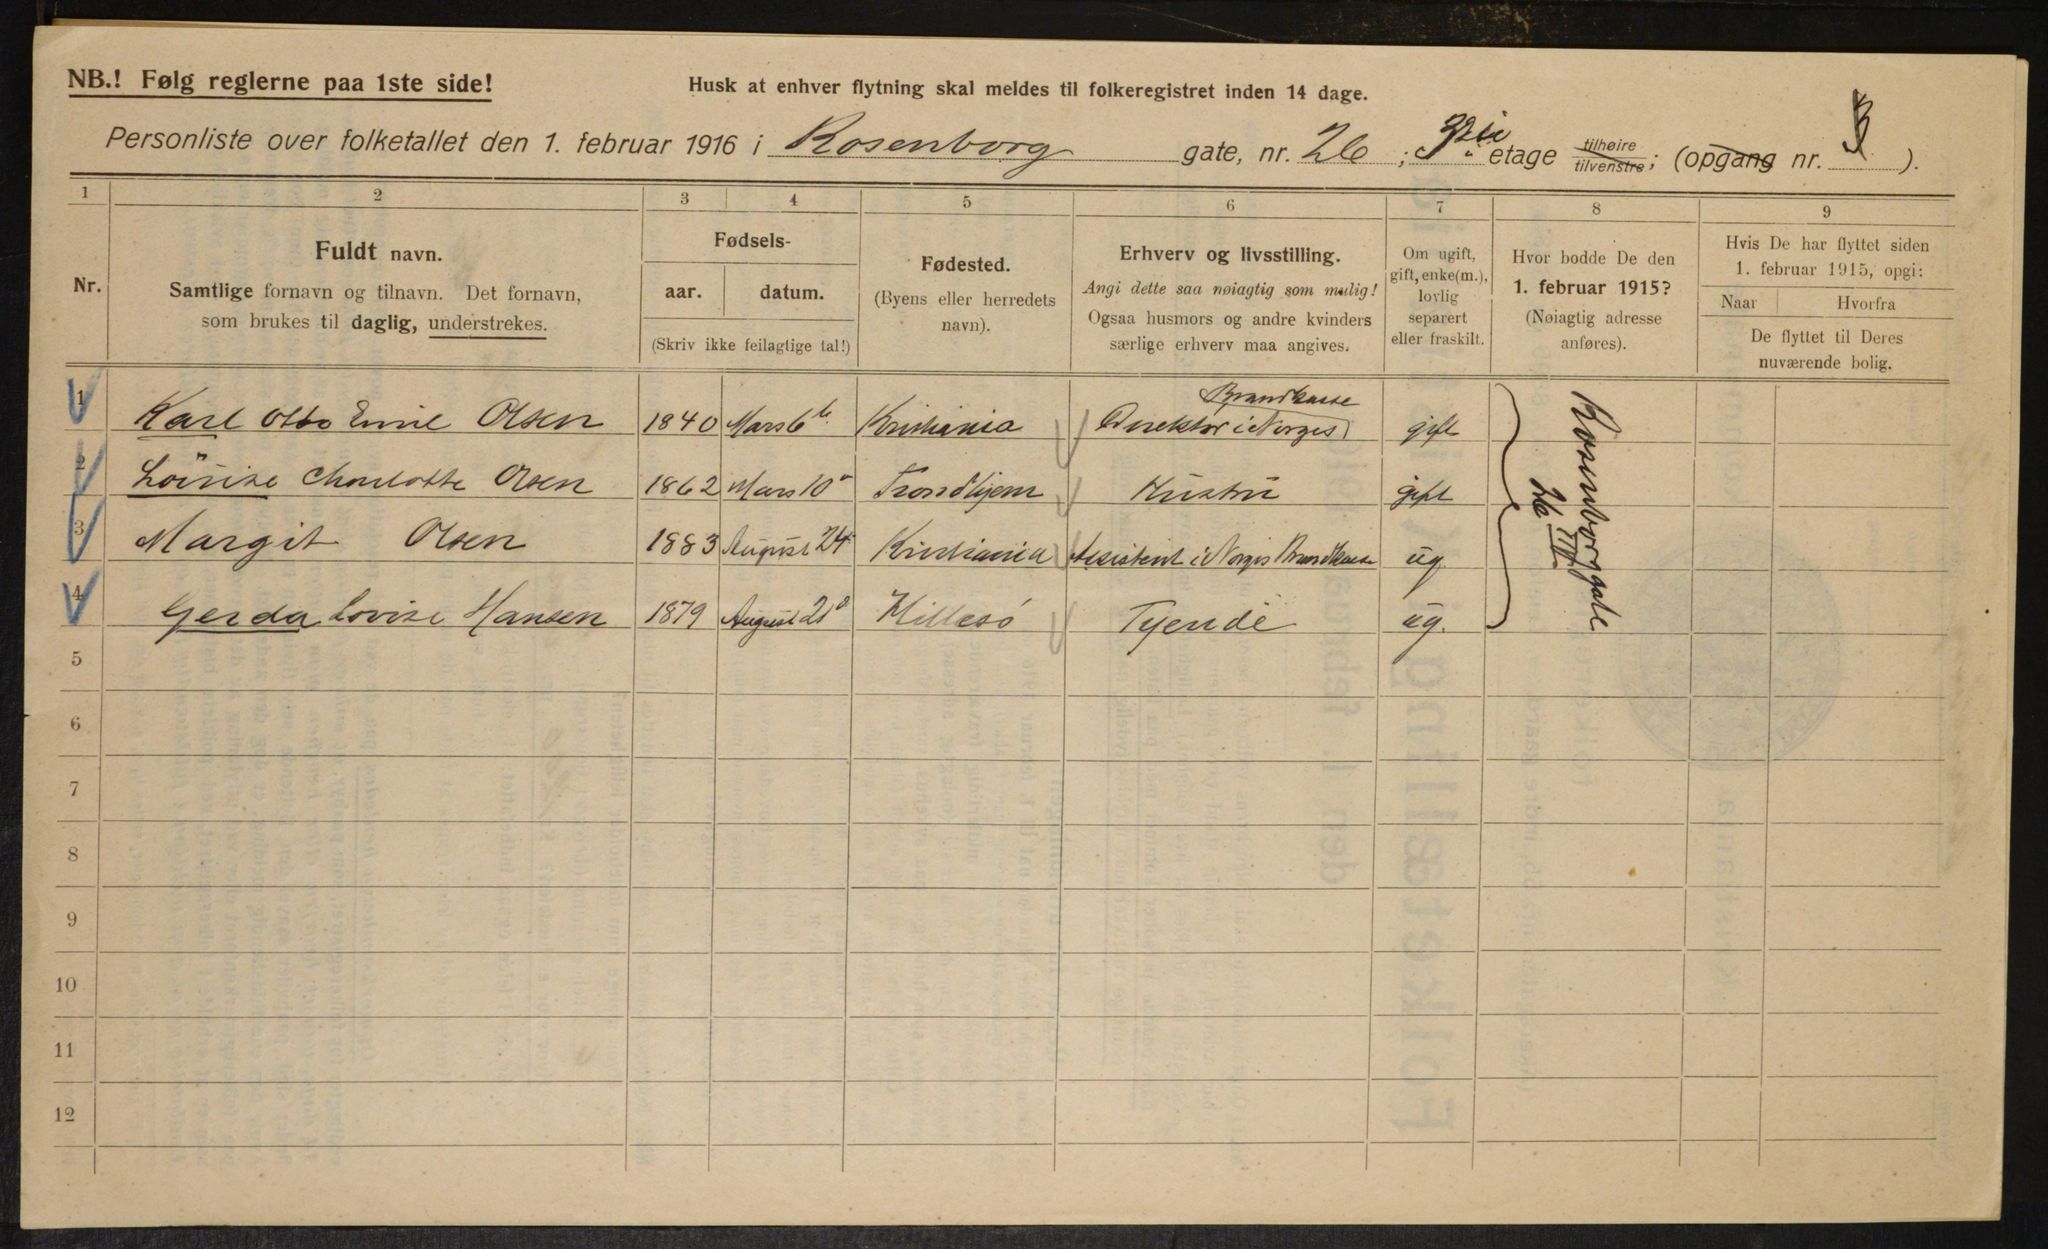 NB.! Følg reglerne paa 1ste side!
Husk at enhver flytning skal meldes til folkeregistret inden 14 dage.
Personliste over folketallet den 1. februar 1916 i Rosenborg gate, nr. 26 ; 3die etage tilhøire tilvenstre; (opgang nr. ).
1 2 3 4 5 6 7 8 9
Nr.
Fuldt navn.
Samtlige fornavn og tilnavn. Det fornavn,
som brukes til daglig, understrekes.
Fødsels-
aar. datum.
(Skriv ikke feilagtige tal!)
Fødested.
(Byens eller herredets
navn).
Erhverv og livsstilling.
Angi dette saa nøiagtig som mulig!
Ogsaa husmors og andre kvinders
særlige erhverv maa angives.
Om ugift,
gift, enke(m.),
lovlig
separert
eller fraskilt.
Hvor bodde De den
1. februar 1915?
(Nøiagtig adresse
anføres).
Hvis De har flyttet siden
1. februar 1915, opgi:
Naar Hvorfra
De flyttet til Deres
nuværende bolig.
1 Karl Otto Emil Olsen 1840 Mars 6te Kristiania Direktør i Norges Brandkasse gift
2 Lovise Charlotte Olsen 1862 Mars 10 Trondhjem Hustru gift
3 Margit Olsen 1883 August 24 Kristiania Assistent i Norges Brandkasse ug.
4 Gerda Lovise Hansen 1879 August 21 Hillesø Tjende ug.
Rosenborggate
26 III
5
6
7
8
9
10
11
12